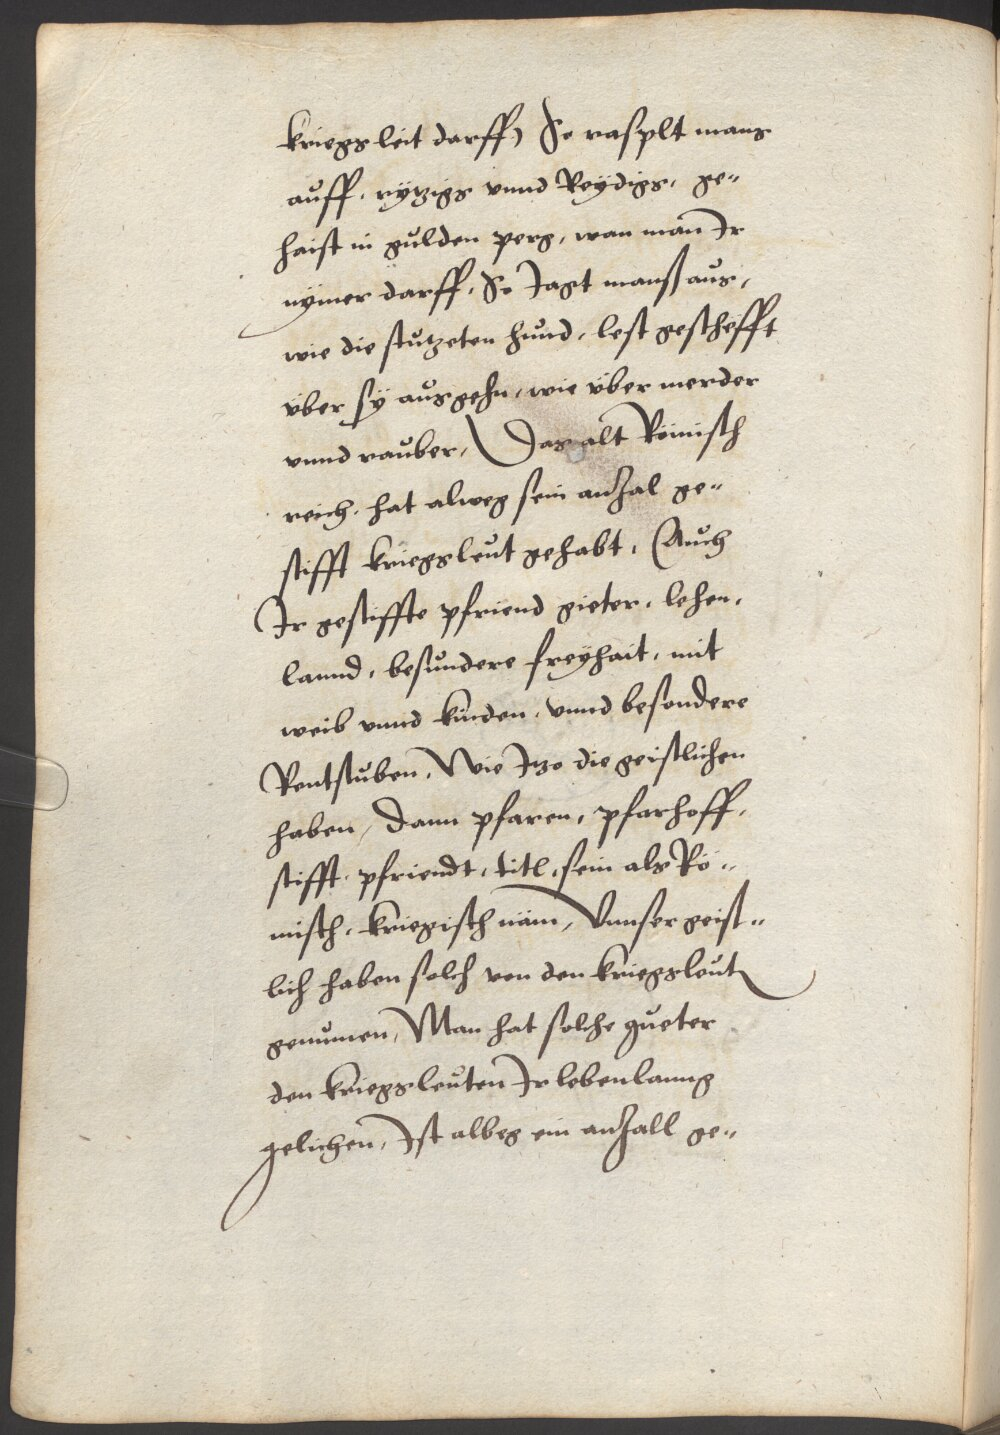 kriegsleit darff) So rasplt mans
auff, rÿtzigs vnnd Reÿdigs, ge„
haist in gulden perg, wan man Ir
nÿmer darff, So Jagt manß aus,
wie die stutzeten hund, lest geschefft
über sÿ ausgehn, wie über merder
vnnd rauber, Das alt Römisch
reich, hat alweg sein anzal ge„
stifft kriegsleut gehabt, (Auch
Ir gestiffte pfriend gieter, lehen,
lannd, besundere freÿhait, mit
weib vnnd kinden, vnnd besondere
Rentstuben, Wie Itzo die geistlichen
haben, Dann pfaren, pfarhoff,
stifft, pfriendt, titl, sein als Rö„
misch, kriegisch näm, Vnnser geist„
lich haben solch von den kriegsleut
genumen, Man hat solche gueter
den kriegsleuten Ir lebenlanng
gelichen, Ist albeg ein anzall ge„